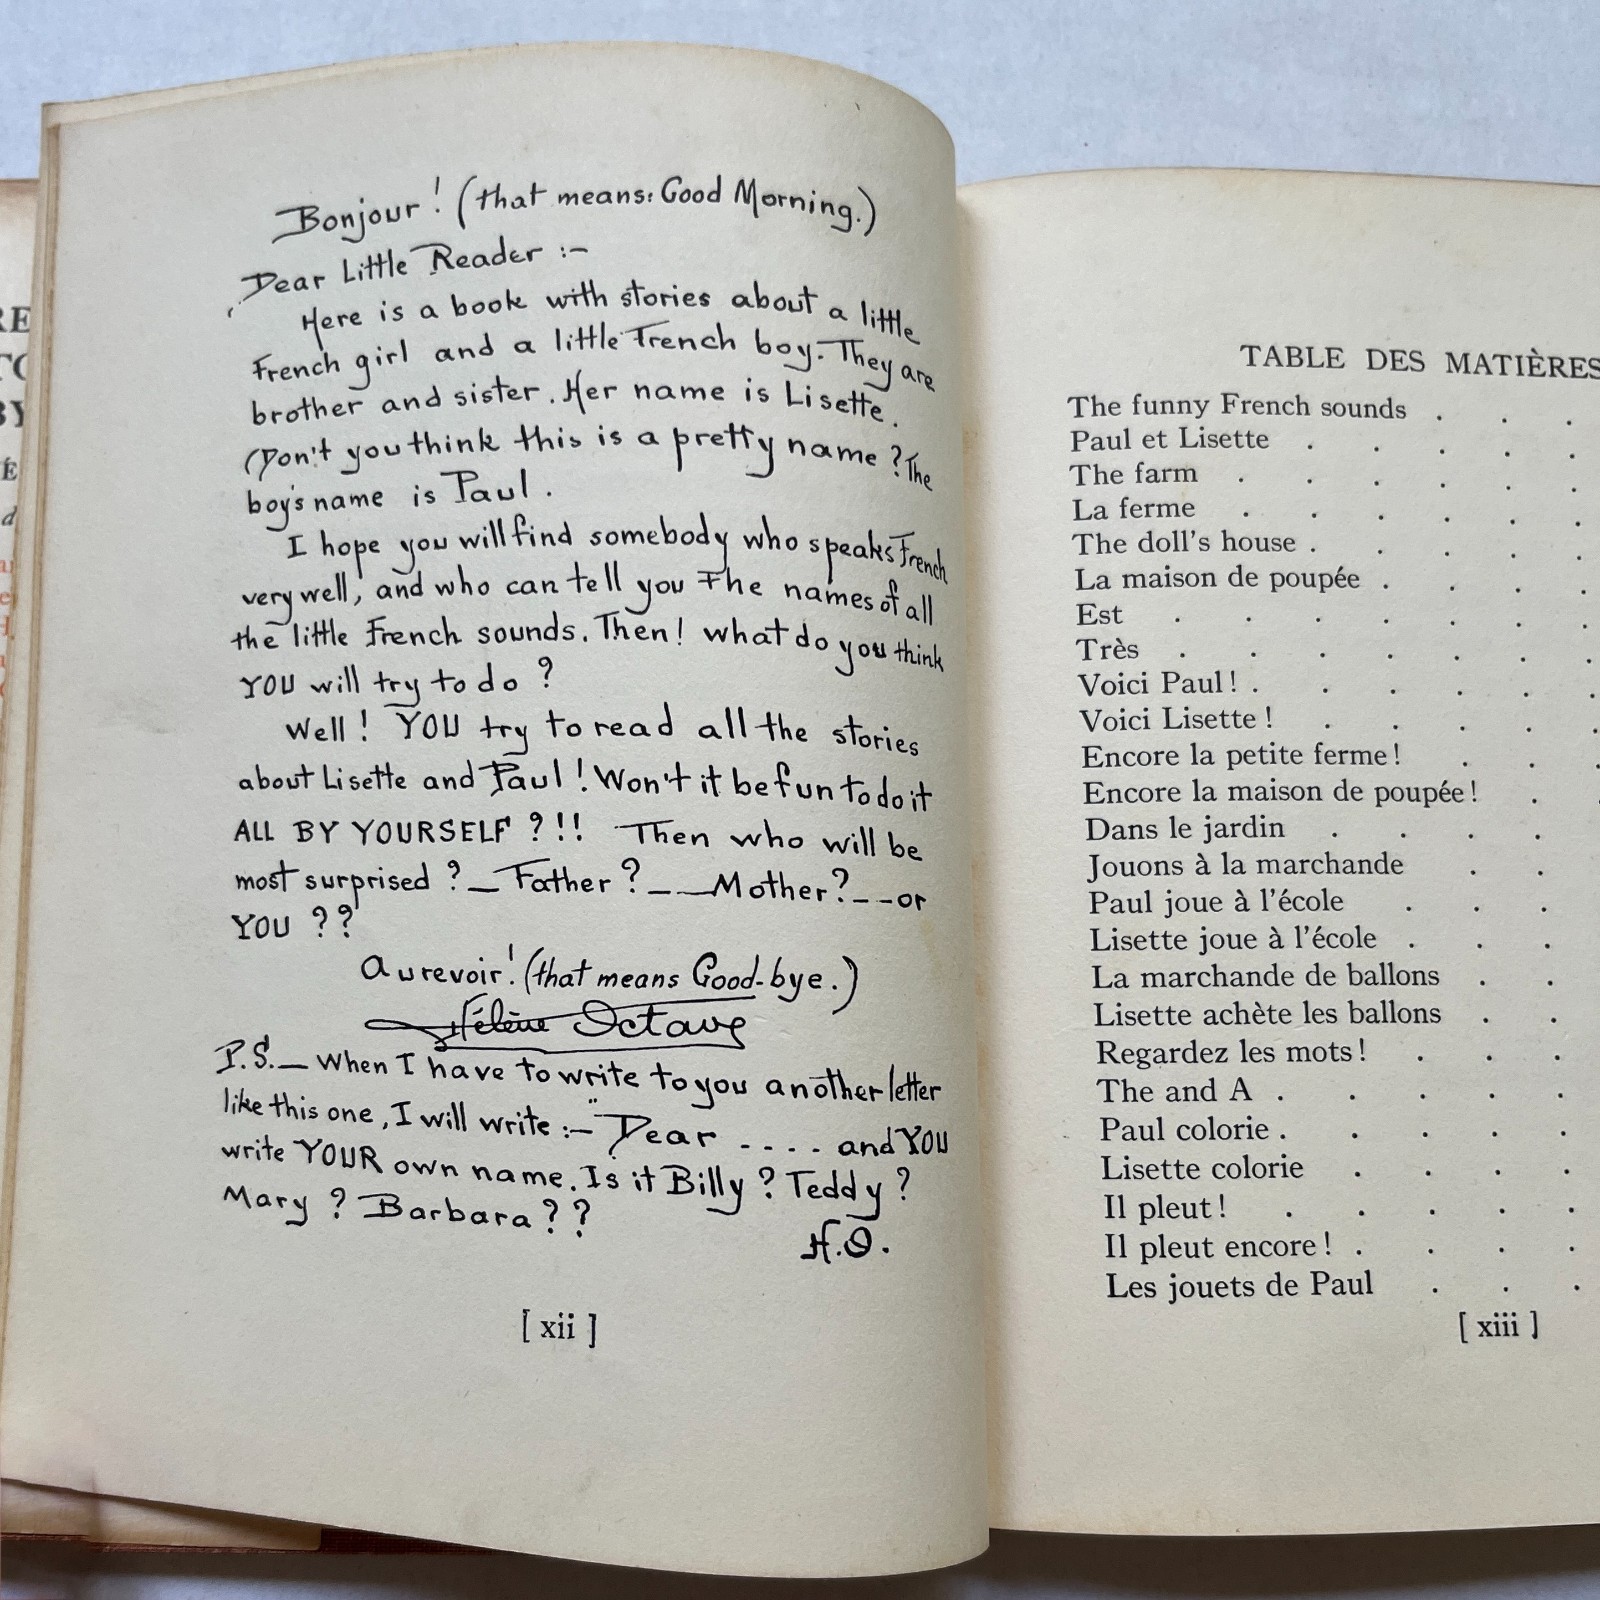 Bonjour! (that means: Good Morning.)
Dear Little Reader :-
Here is a book with stories about a little
French girl and a little French boy. They are
brother and sister. Her name is Lisette.
(Don't you think this is a pretty name? The
boy's name is Paul.
I hope you will find somebody who speaks French
very well, and who can tell you the names of all
the little French sounds. Then! what do you think
YOU will try to do ?
Well! YOU try to read all the stories
about Lisette and Paul! Won't it be fun to do it
ALL BY YOURSELF ?!! Then who will be
most surprised ? _ Father ? _ _ Mother? _ _ or
YOU ??
Au revoir! (that means Good-bye.)
Hélène Octave
P.S. _ When I have to write to you another letter
like this one, I will write :- "Dear .... and YOU
write YOUR own name. Is it Billy ? Teddy ?
Mary ? Barbara ??
H.O.
[ xii ]
TABLE DES MATIÈRES
The funny French sounds . . .
Paul et Lisette . . . . .
The farm . . . . . .
La ferme . . . . . .
The doll's house . . . . .
La maison de poupée . . . .
Est . . . . . . .
Très . . . . . . .
Voici Paul! . . . . . .
Voici Lisette! . . . . .
Encore la petite ferme! . . .
Encore la maison de poupée! . .
Dans le jardin . . . .
Jouons à la marchande . .
Paul joue à l'école . . .
Lisette joue à l'école . . .
La marchande de ballons . .
Lisette achète les ballons . .
Regardez les mots! . . .
The and A . . . . .
Paul colorie . . . . .
Lisette colorie . . . .
Il pleut! . . . . .
Il pleut encore! . . . .
Les jouets de Paul . . .
[ xiii ]